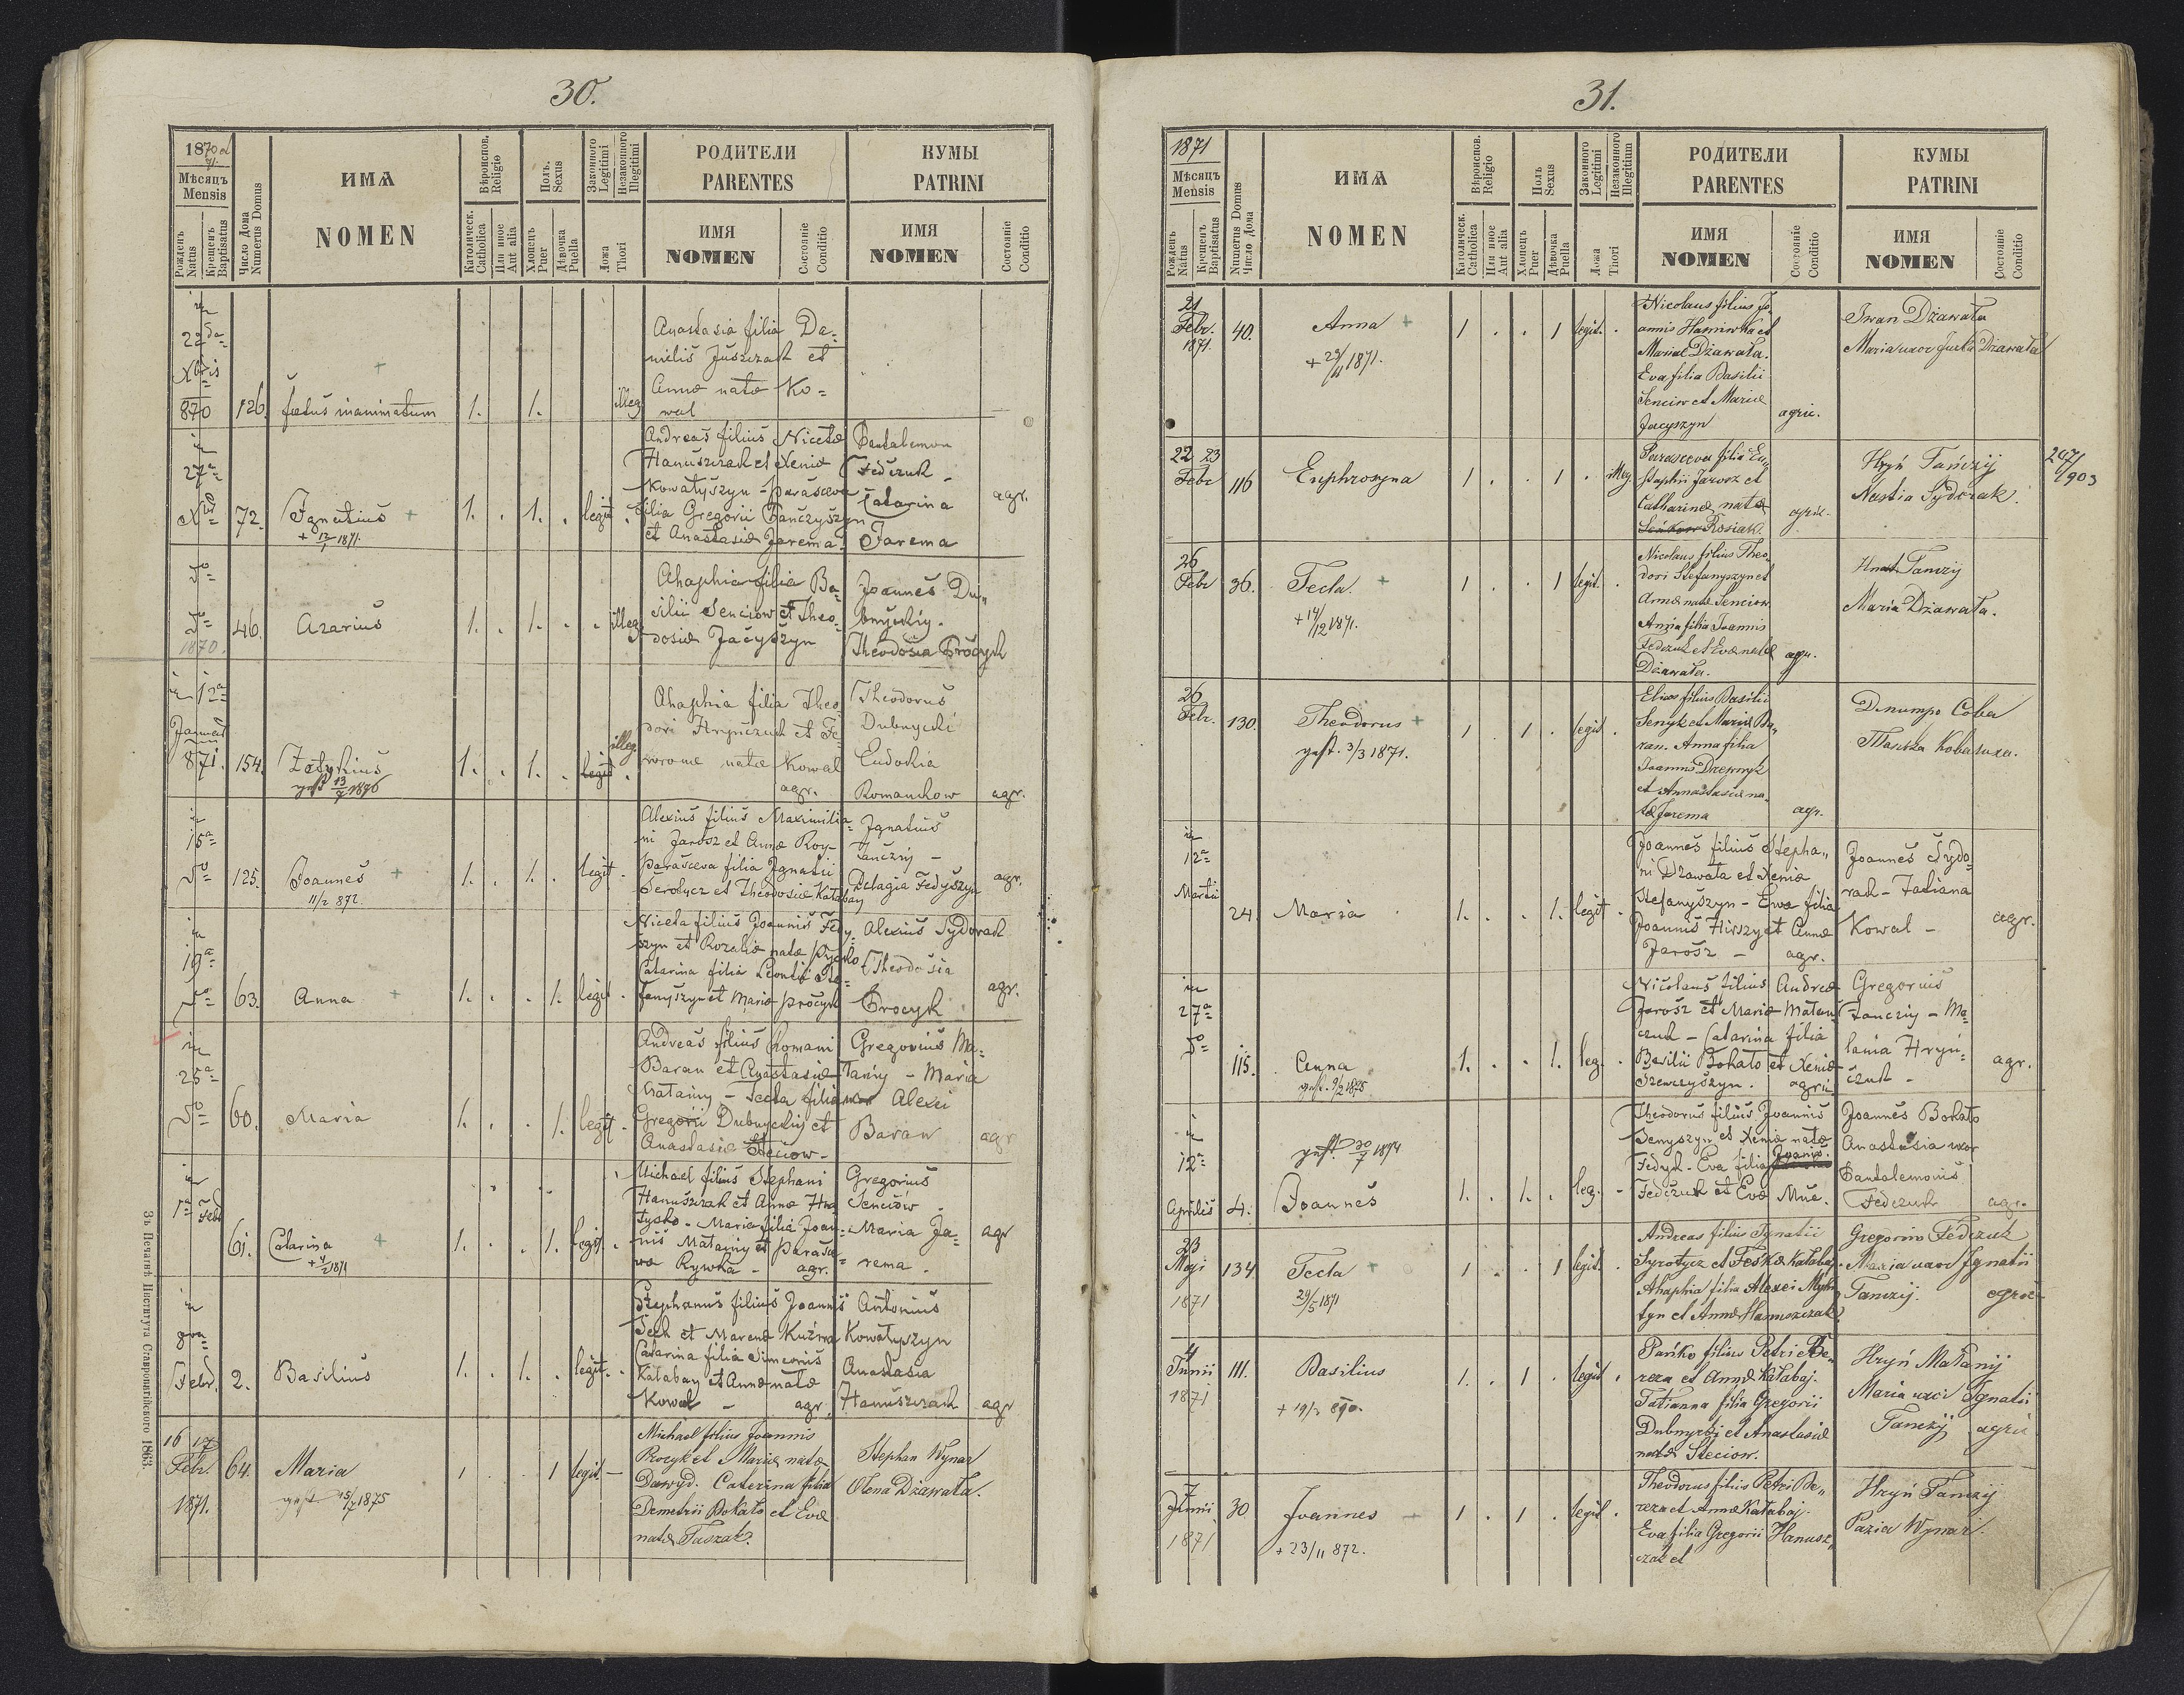 30.
1870 et
71.
Мѣсяцъ
Mensis
Рожденъ
Natus
Крещенъ
Baptisatus
Число Дома
Numerus Domus
ИМѦ
NOMEN
Вѣроиспов.
Religio
Католическ.
Catholica
Или иное
Aut alia
Полъ.
Sexus
Хлопецъ
Puer
Дѣвочка
Puella
Законного
Legitimi
Незаконного
Illegitimi
Ложа
Thori
РОДИТЕЛИ
PARENTES
ИМЯ
NOMEN
Состояніе
Conditio
КУМЫ
PATRINI
ИМЯ
NOMEN
Состояніе
Conditio
in
22da
Xbris
870
126.
fœtus inanimatum
1.
1.
illeg
Anastasia filia Da-
nielis Juszczak et
Annæ natæ Ko-
wal
in
27a
Xbr
72.
Ignatius +
+ 12/1 1871.
1. . 1. . legit .
Andreas filius Nicetæ
Hanuszczak et Xeniæ
Kowatyszyn - Parasceva
filia Gregorii Tanczyszyn
et Anastasiæ Jarema.
Pantalemon
Fedczuk -
Catarina
Jarema
agr.
do
do
1870.
46.
Azarius
1. . 1. . . illeg.
Ahaphia filia Ba-
silii Senciow et Theo-
dosiæ Jacyszyn
Joannes Du-
bnyckiy.
Theodosia Procyk
in 12a
Januarii
871.
154.
Zotykius
gest 13/7 1896
1. . 1. . legit .
illeg
Ahaphia filia Theo
dori Hrynczuk et Fe-
wroniæ natæ Kowal
agr.
Theodorus
Dubnycki
Eudokia
Romankow
agr.
in
15a
do
125.
Joannes +
11/2 872.
1. . 1. . legit .
Alexius filius Maximilia-
ni Jarosz et Annæ Roy-
Parasceva filia Ignatii
Serotycz et Theodosiæ Katabay
Ignatius
Tanczyj -
Pelagia Fedyszyn
agr.
in
19a
do
63.
Anna +
1. . . 1. legit .
Niceta filius Joannis Fedy-
szyn et Rozaliæ natæ
Catarina filia Leontii Ste-
fanyszyn et Mariæ Procyk
Alexius Sydorak
Theodosia
Procyk
agr.
in
25a
do
60.
Maria
1. . . 1. legit .
Andreas filius Romani
Baran et Anastasiæ
Matainy - Tecla filia
Gregorii Dubnyckij et
Anastasiæ Steciow -
Gregorius Ma-
tainy - Maria
uxor Alexei
Baran
agr
in
1a Febr
61.
Catarina +
+ 4/2 1871
1. . . 1. legit .
Michael filius Stephani
Hanuszczak et Annæ Hna
tysko - Maria filia Joan-
nis Matainy et Parasce-
væ Rywka - agr.
Gregorius
Senciow -
Maria Ja-
rema -
agr
in
8va
Febr.
2.
Basilius
1. . 1. . legit .
Stephanus filius Joannis
Pech et Marenæ Kuźma
Catarina filia Simeonis
Katabay et Annæ natæ
Kowal - agr.
Antonius
Kowatyszyn
Anastasia
Hanuszczak
agr
16 17
Febr.
1871.
64.
Maria
gest 15/7 1875
1 . . 1 legit -
Michael filius Joannis
Procyk et Mariæ natæ
Dawyd. Caterina filia
Demetrii Bokalo et Evæ
natæ Taszak.
Stephan Wynar
Olena Dzawata.
Зъ Печатнѣ Института Ставропигійского 1863.
31.
1871
Мѣсяцъ
Mensis
Рожденъ
Natus
Крещенъ
Baptisatus
Numerus Domus
Число Дома
ИМѦ
NOMEN
Вѣроиспов.
Religio
Католическ.
Catholica
Или иное
Aut alia
Полъ
Sexus
Хлопецъ
Puer
Дѣвочка
Puella
Законного
Legitimi
Незаконного
Illegitimi
Ложа
Thori
РОДИТЕЛИ
PARENTES
ИМЯ
NOMEN
Состояніе
Conditio
КУМЫ
PATRINI
ИМЯ
NOMEN
Состояніе
Conditio
21
Febr.
1871.
40.
Anna +
+ 29/11 1871.
1 . . 1 legit. .
Nicolaus filius Jo-
annis Hamiwka et
Mariæ Dzawata.
Eva filia Basilii
Senciow et Mariæ
Jacyszyn
agric.
Iwan Dzawata
Maria uxor Jurka Dzawata
22 23
Febr
116
Euphrosyna
1 . . 1 . illeg
Parasceva filia Eu-
staphii Jarosz et
Catharinæ natæ
Rosiak.
agric.
Hryń Tańczij
Nastia Sydorak.
247/1903
26
Febr
36.
Tecla. +
+ 14/12 1871.
1 . . 1 legit. .
Nicolaus filius Theo-
dori Stefanyszyn et
Annæ natæ Senciow.
Anna filia Joannis
Fedczuk et Evæ natæ
Dzawata.
agr.
Hnat Tanczij
Maria Dzawata.
26
Febr.
130.
Theodorus +
gest. 3/3 1871.
1 . 1 . legit .
Elias filius Basilii
Senyk et Mariæ Ba-
ran. Anna filia
Joannis Drewnyk
et Annastasiæ na-
tæ Jarema
agr.
in
12a
Martii
24.
Maria
1. . . 1. legit .
Joannes filius Stepha-
ni Dzawata et Xeniæ
Stefanyszyn - Eva filia
Joannis Hirszy et Annæ
Jarosz - agr.
Joannes Sydo-
rak - Tatiana
Kowal -
agr.
in
27a
do
115.
Anna
gest. 9/2 1875
1. . . 1. leg. .
Nicolaus filius Andreæ
Jarosz et Mariæ Matan-
czuk - Catarina filia
Basilii Bokato et Xeniæ
Szewczyszyn. agric.
Gregorius
Tanczij - Me-
lania Hryń-
czuk -
agr.
in
12a
Aprilis
4.
gest. 30/7 1874
Joannes
1. . 1. . leg. -
Theodorus filius Joannis
Senyszyn et Xeniæ natæ
Fedyk. Eva filia Joanis.
Fedczuk et Evæ Muc.
Joannes Bokato
Anastasia uxor
Pantalemonis
Fedczuk
agr.
23
Maji
1871
134
Tecla +
29/5 1871
1 . . 1 legit. .
Andreas filius Ignatii
Syrotycz et Feśkæ Katabaj.
Ahaphia filia Alexei Myky-
tyn et Annæ Hanuszczak
Gregorius Fedczuk
Maria uxor Ignatii
Tanczij.
agric
4
Junii
1871
111.
Basilius
+ 19/3 890.
1. . 1 . legit .
Pańko filius Petri Be-
reza et Annæ Katabaj.
Tatianna filia Gregorii
Dubnyckij et Anastasiæ
natæ Steciow.
Hryń Matanij
Maria uxor Ignatii
Tanczij
agric
7
Junii
1871
30
Joannes
+ 23/11 872.
1 . 1 . legit .
Theodorus filius Petri Be-
reza et Annæ Katabaj.
Eva filia Gregorii Hanusz-
czak et
Hryń Tanczij
Pazia Wynar.